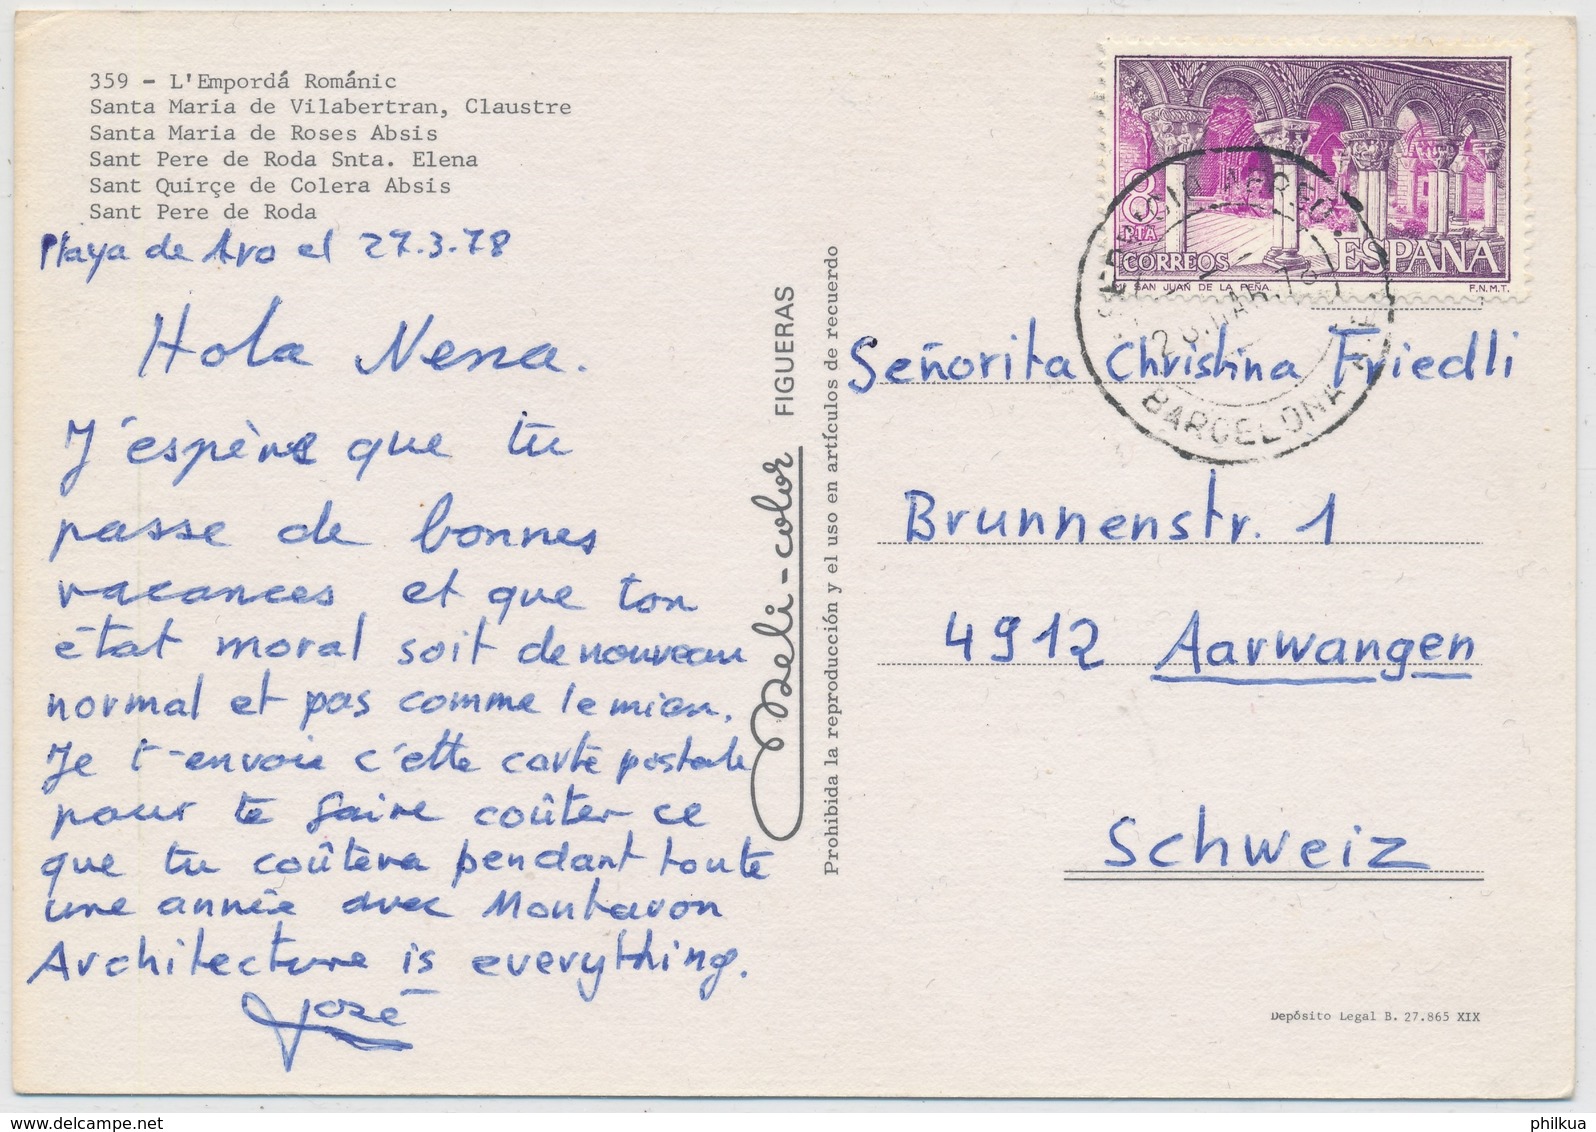 359 - L'Empordá Románic
Santa Maria de Vilabertran, Claustre
Santa Maria de Roses Absis
Sant Pere de Roda Snta. Elena
Sant Quirçe de Colera Absis
Sant Pere de Roda
Playa de Aro el 27.3.78
Hola Nena.
J'espère que tu
passe de bonnes
vacances et que ton
état moral soit de nouveau
normal et pas comme le mien.
Je t-envoie c'ette carte postale
pour te faire coûter ce
que tu coûtera pendant toute
une année avec Montavon
Architecture is everything.
José
meli-color FIGUERAS
Prohibida la reproducción y el uso en artículos de recuerdo
8 PTA
CORREOS
ESPAÑA
SAN JUAN DE LA PEÑA
F.N.M.T.
AEREO
BARCELONA
Señorita Christina Friedli
Brunnenstr. 1
4912 Aarwangen
Schweiz
Depósito Legal B. 27.865 XIX
philkua